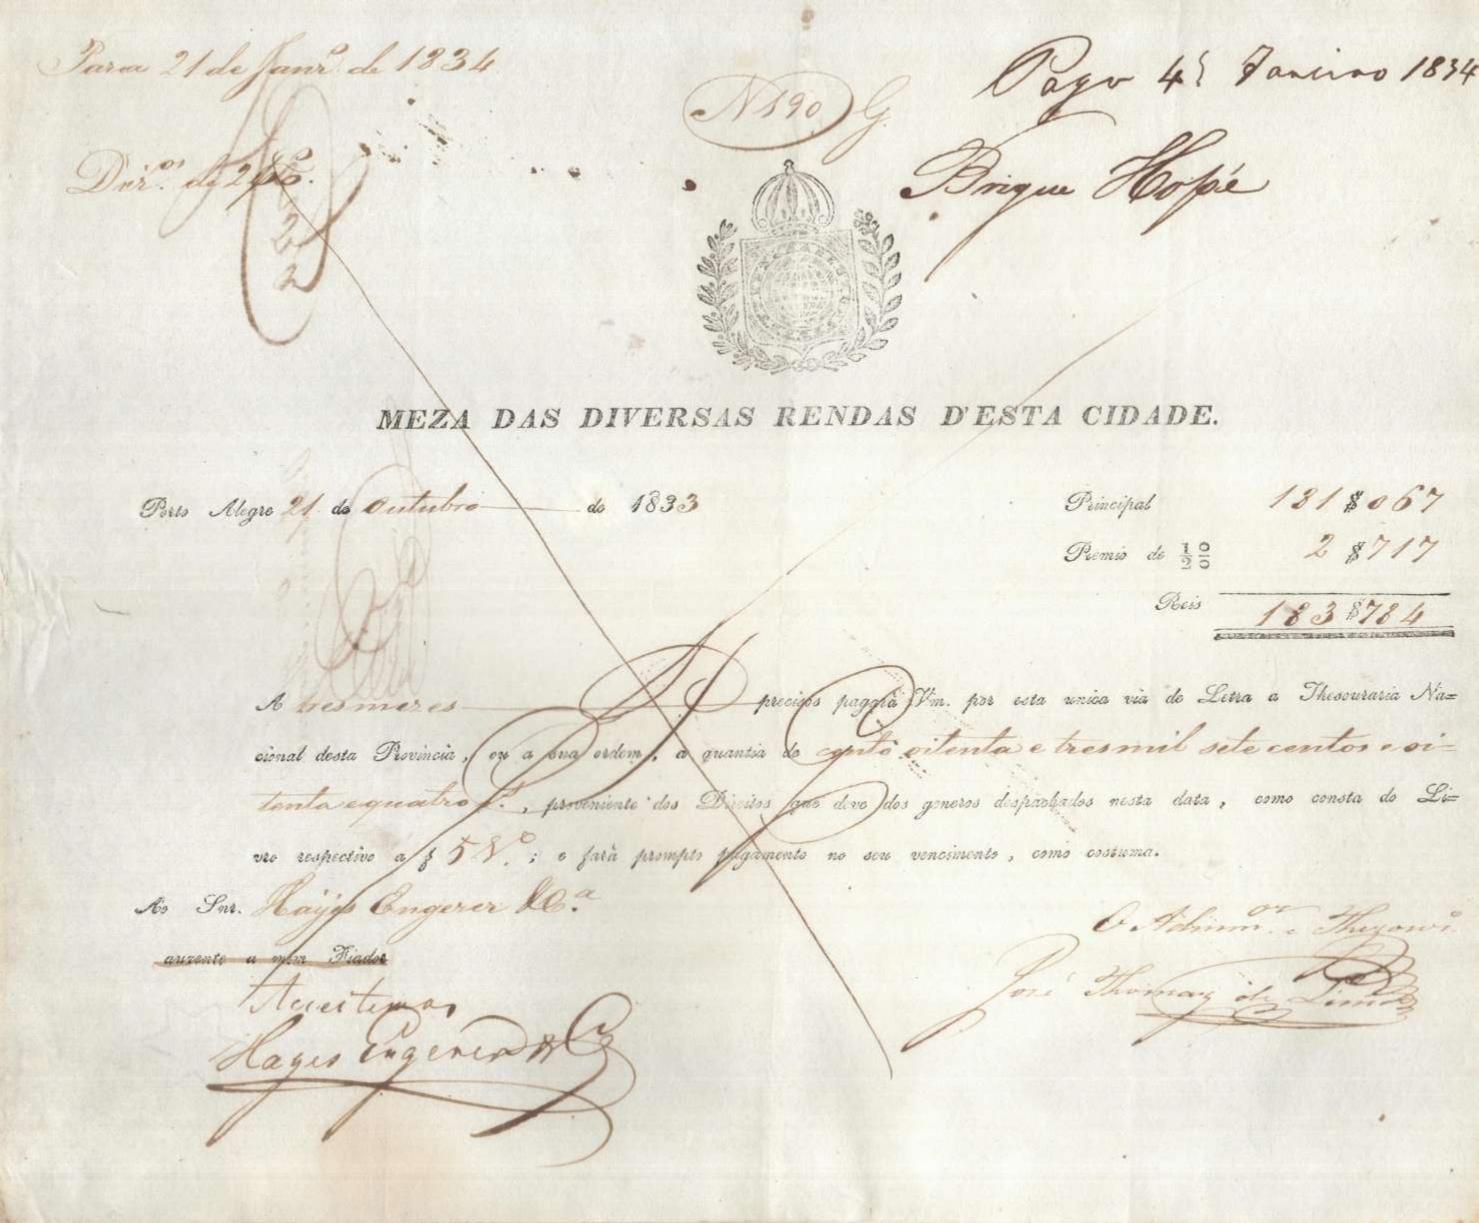 Para 21 de Janr.º de 1834
Nº 190 G
Pago 4 Janeiro 1834
Dir.ºs de
2
2
Brigue Hopé
MEZA DAS DIVERSAS RENDAS D'ESTA CIDADE.
Porto Alegre 21 de Outubro de 1833
Principal 181$067
Premio de ½ 0/0 2$717
Reis 183$784
A tres mezes precisos pagará Vm. por esta unica via de Letra a Thesouraria Na=
cional desta Provincia, ou a sua ordem, a quantia de cento oitenta e tres mil sete centos e oi=
tenta e quatro r.s, proveniente dos Direitos que deve dos generos despachados nesta data, como consta do Li=
vro respectivo a f 5 V.º; e fará prompto pagamento no seu vencimento, como costuma.
Ao Snr. Hayes Engerer & C.ª
auzente a mim Fiador
O Admin.or e Thezour.º
Aceitamos
José Thomaz de Lima
Hayes Engerer & Cª